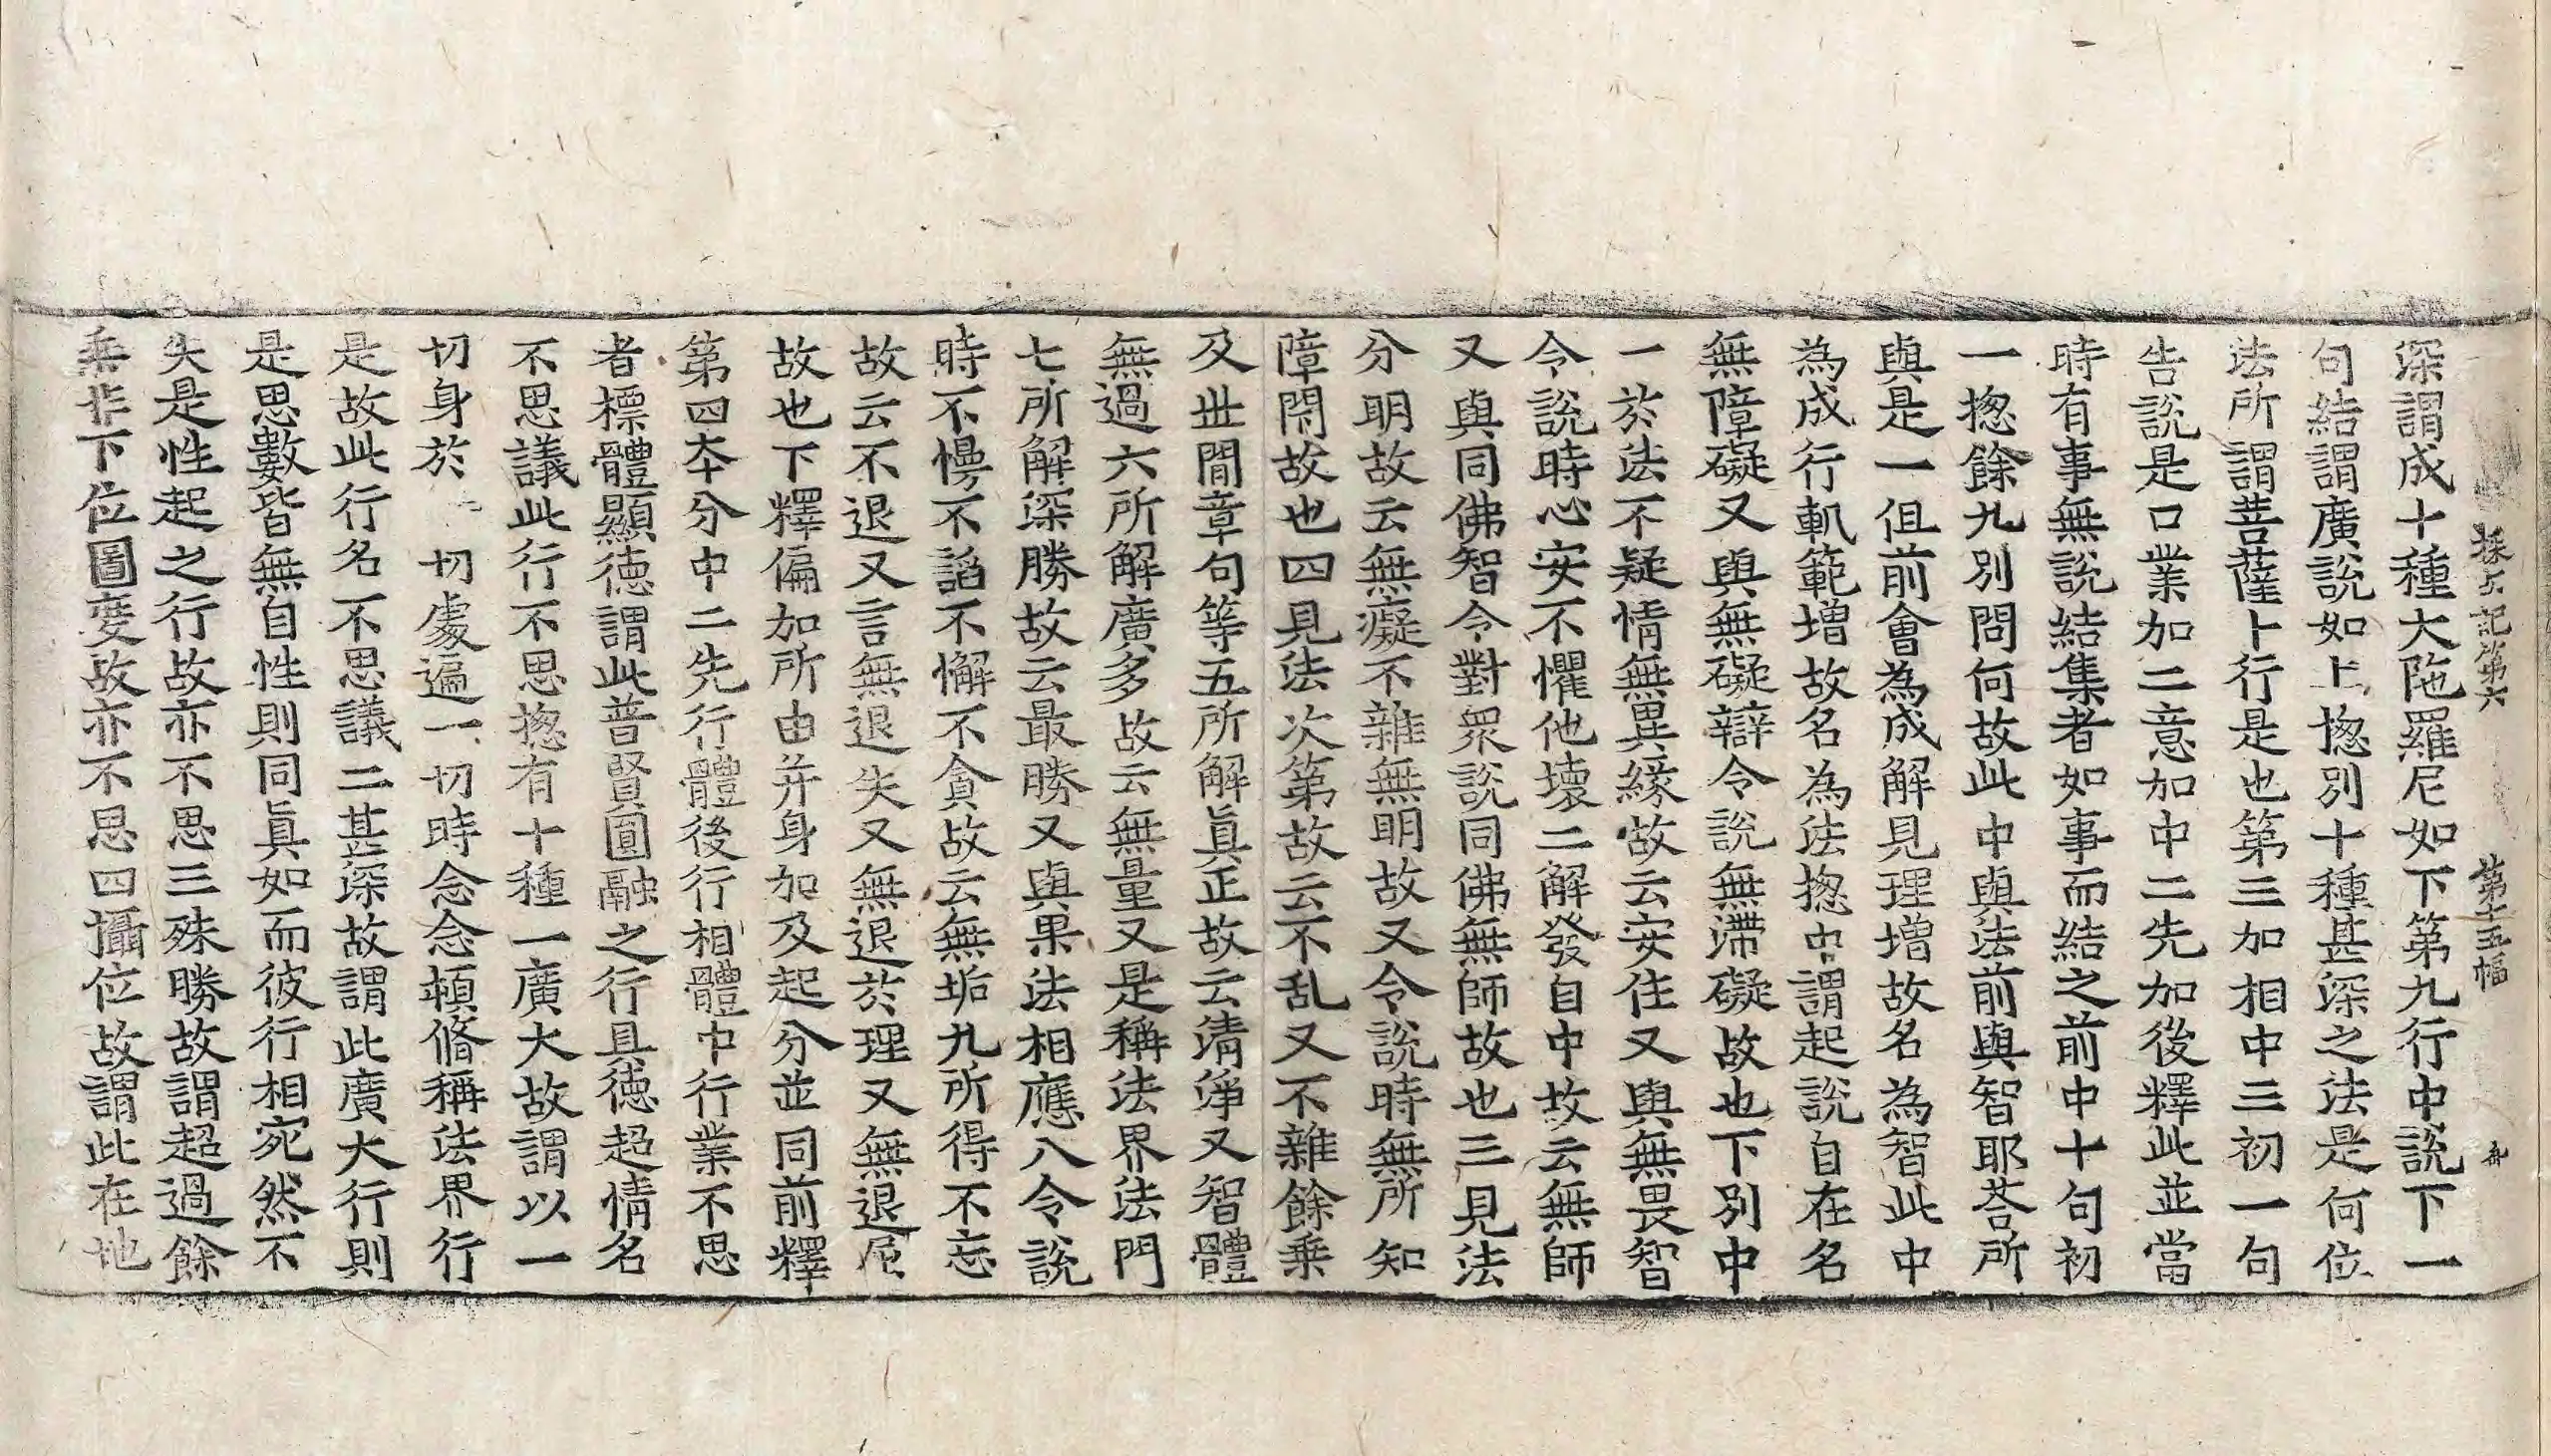 探玄記第六　第十五幅
深謂成十種大陁羅尼如下第九行中說下一
句結謂廣說如上揔別十種甚深之法是何位
法所謂菩薩十行是也第三加相中三初一句
告說是口業加二意加中二先加後釋此並當
時有事無說結集者如事而結之前中十句初
一揔餘九別問何故此中與法前與智耶荅所
與是一但前會為成解見理增故名為智此中
為成行軌範增故名為法揔中謂起說自在名
無障礙又與無礙辯令說無滯礙故也下別中
一於法不疑情無異緣故云安住又與無畏智
令說時心安不懼他壞二解發自中故云無師
又與同佛智令對眾說同佛無師故也三見法
分明故云無癡不雜無明故又令說時無所知
障閡故也四見法次第故云不乱又不雜餘乗
及世閒章句等五所解眞正故云淸淨又智體
無過六所解廣多故云無量又是稱法界法門
七所解深勝故云最勝又與果法相應八令說
時不慢不諂不懈不貪故云無垢九所得不忘
故云不退又言無退失又無退於理又無退屈
故也下釋偏加所由并身加及起分並同前釋
第四本分中二先行體後行相體中行業不思
者標體顯德謂此普賢圓融之行具德超情名
不思議此行不思揔有十種一廣大故謂以一
切身於一切處遍一切時念念頓脩稱法界行
是故此行名不思議二甚深故謂此廣大行則
是思數皆無自性則同眞如而彼行相宛然不
失是性起之行故亦不思三殊勝故謂超過餘
乗非下位圖度故亦不思四攝位故謂此在地